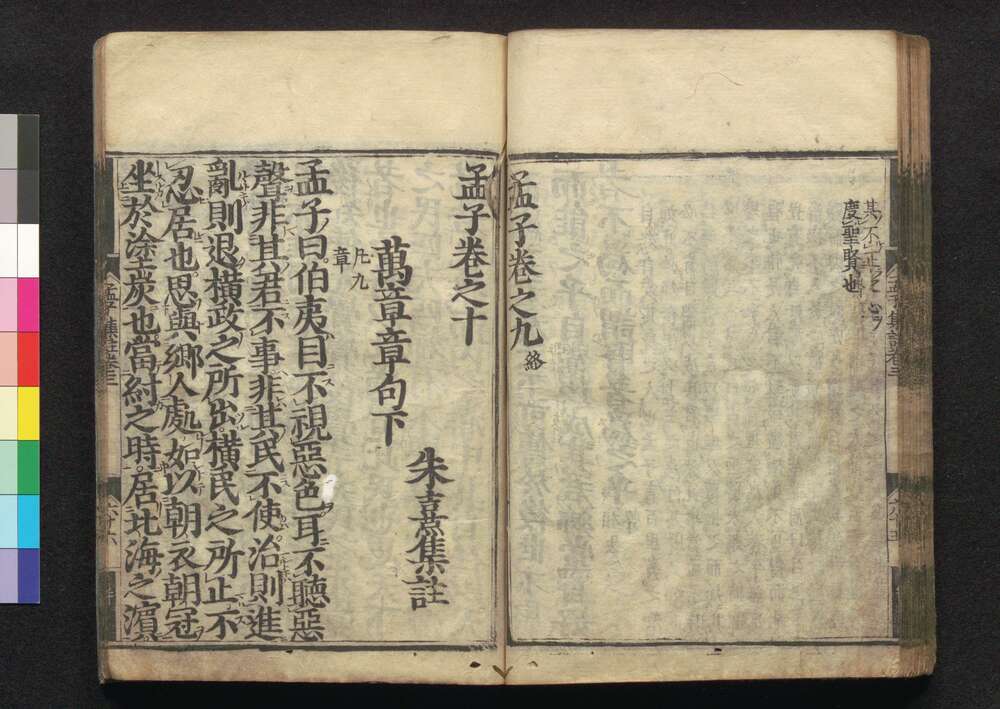 其不正之心
慶聖賢也
孟子卷之九 終
孟子卷之十
朱熹集註
萬章章句下
凡九
章
孟子曰伯夷目不視惡色耳不聽惡
聲非其君不事非其民不使治則進
亂則退橫政之所出橫民之所止不
忍居也思與鄉人處如以朝衣朝冠
坐於塗炭也當紂之時居北海之濵
孟子集註卷三
六十六